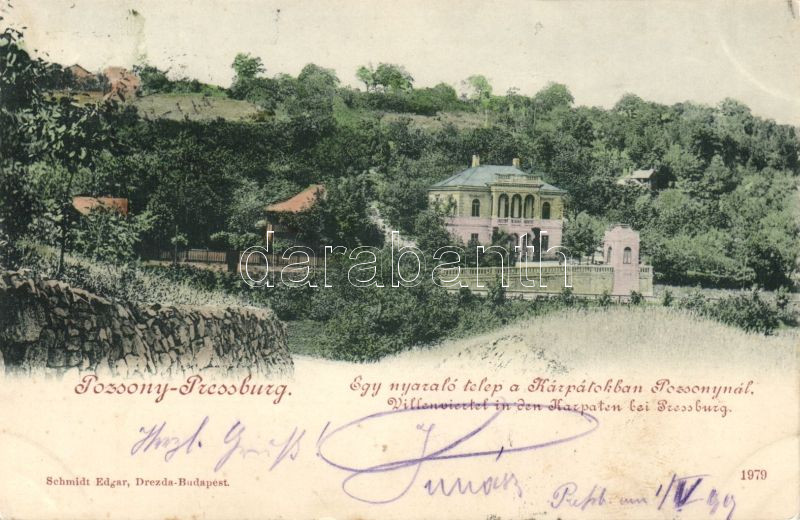 darabanth
Pozsony-Pressburg.
Egy nyaraló telep a Kárpátokban Pozsonynál.
Villenviertel in den Karpaten bei Pressburg.
Herzl. Gruss!
Schmidt Edgar, Drezda-Budapest.
1979
Pressb. am 1/IV 99